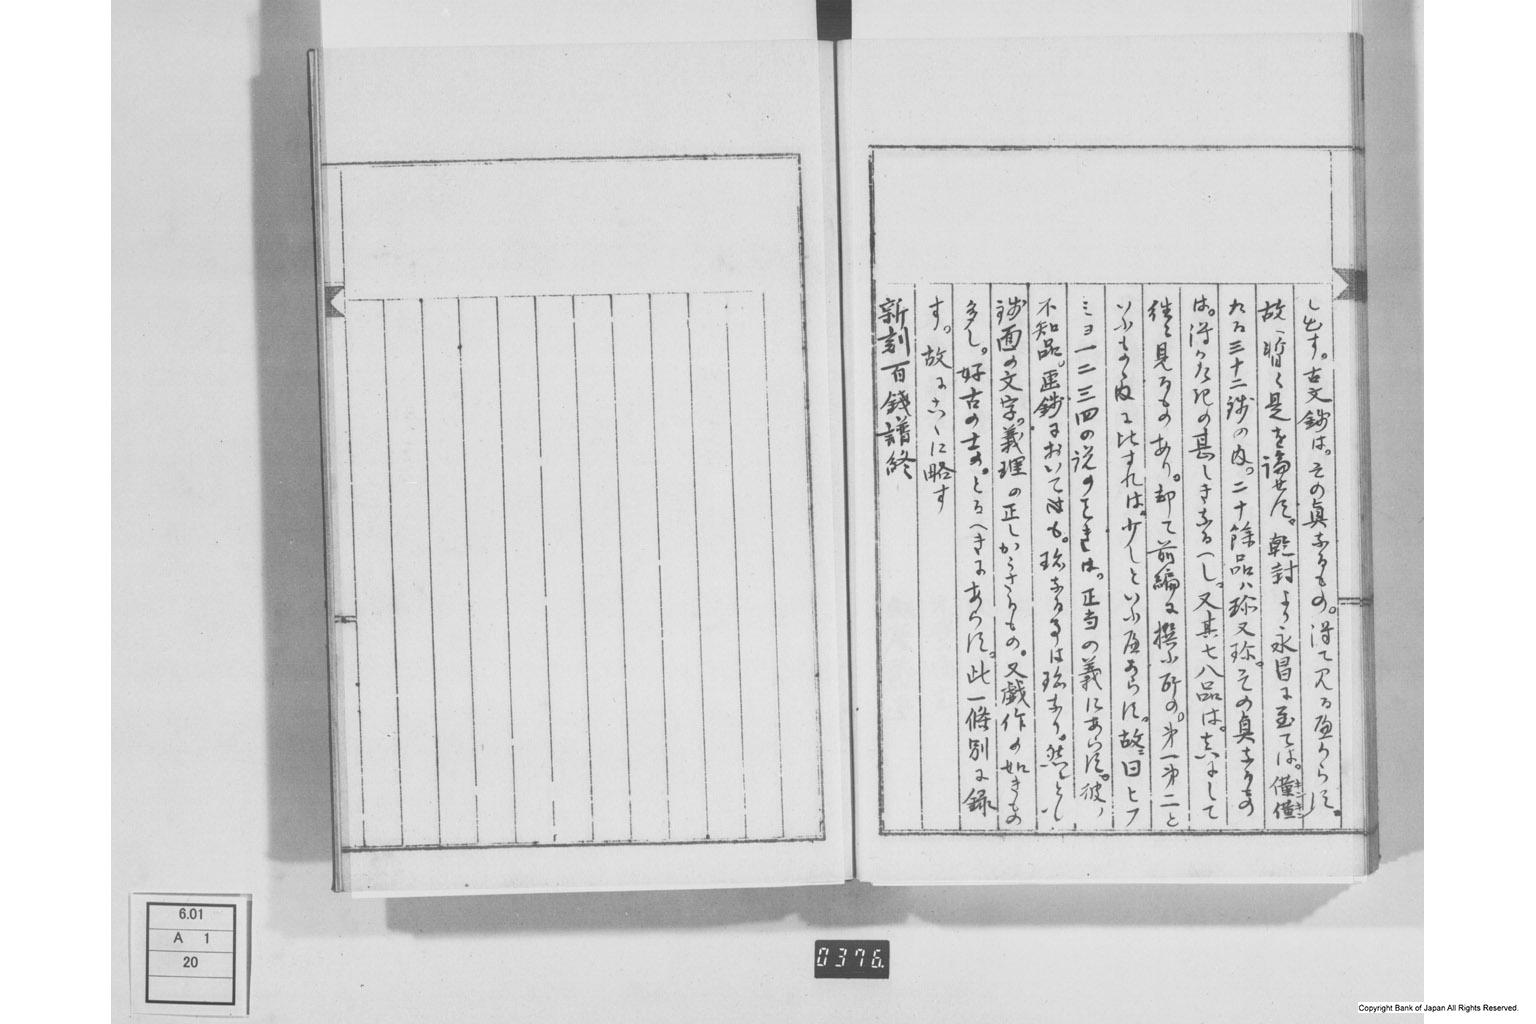 し出す。古文銭は。その真なるもの。得て見る可からす。
故ニ暫く是を論せす。乾封より永昌に至ては。僅僅
たる三十二銭の内。二十餘品ハ珍又珍。その真なるもの
は。得かたきの甚しきなるへし。又其七八品は。まゝにして
往々見るものあり。却て前編に撰ふ所の。第一第二と
いふものゝ内に比すれは。少しといふ可あらす。故ニ曰ヒフ
ミヨ一二三四の説のときは。正当の義にあらす。彼ノ
不知品。無銭においても。珍なる事は珍なり。然とも
銭面の文字。義理の正しからさるもの。又戯作の如きもの
多し。好古の士の。とるへきにあらす。此一條別に録
す。故にこゝに略す
新刻百錢譜終
6.01
A 1
20
0376
Copyright Bank of Japan All Rights Reserved.